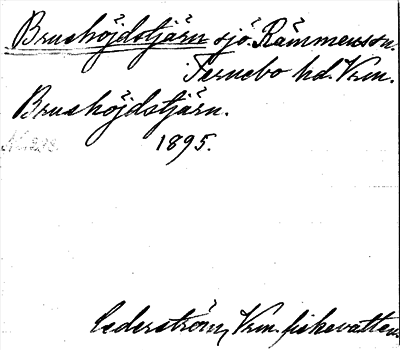 Brushöjdstjärn sjö. Rämmensson.
Fernebo hd. Vrm.
Brushöjdstjärn.
1895.
Cederström, Vrm. fiskevatten